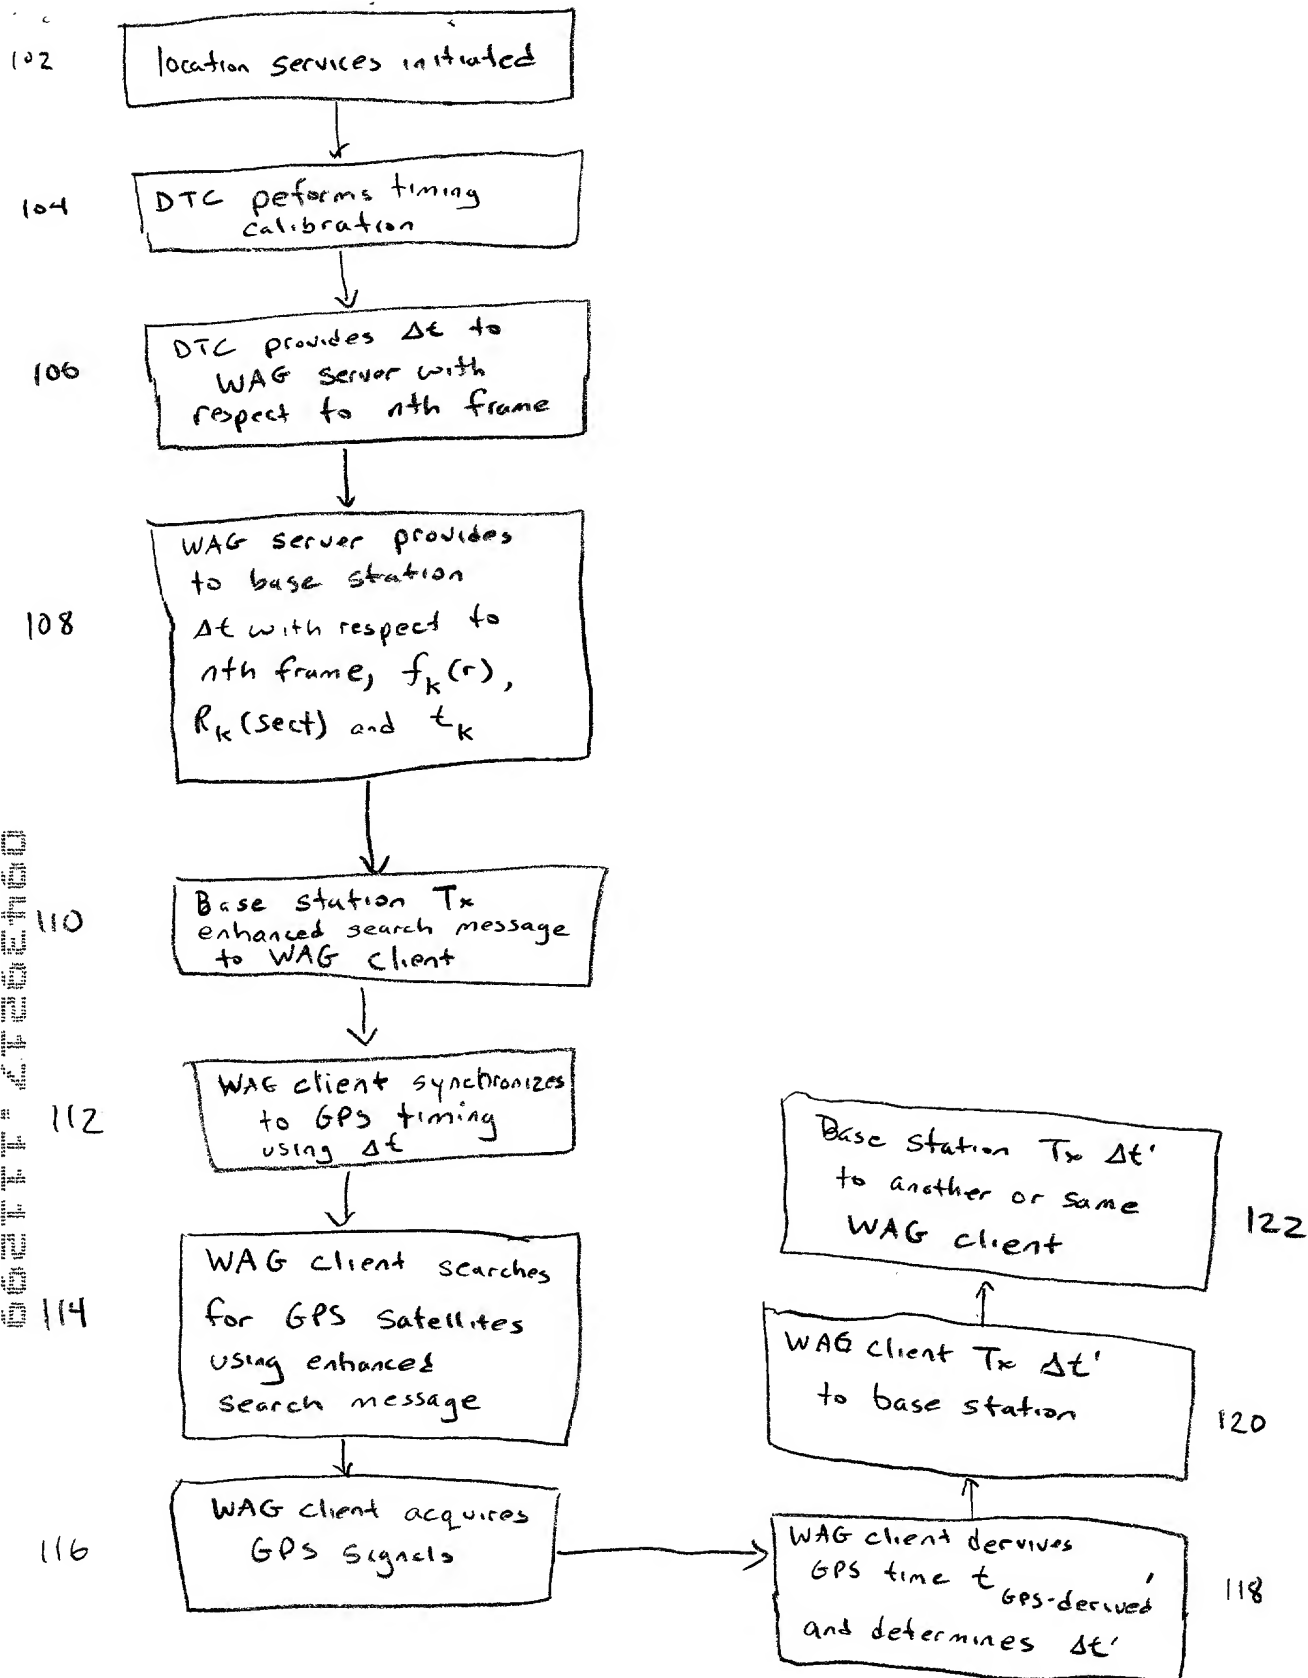 102
location services initiated
104
DTC peforms timing
calibration
106
DTC provides Δt to
WAG server with
respect to nth frame
108
WAG server provides
to base station
Δt with respect to
nth frame, f_k(r),
R_k(sect) and t_k
110
Base station Tx
enhanced search message
to WAG client
112
WAG client synchronizes
to GPS timing
using Δt
114
WAG client searches
for GPS satellites
using enhanced
search message
116
WAG client acquires
GPS signals
WAG client dervives
GPS time t_GPS-derived'
and determines Δt'
118
WAG client Tx Δt'
to base station
120
Base station Tx Δt'
to another or same
WAG client
122